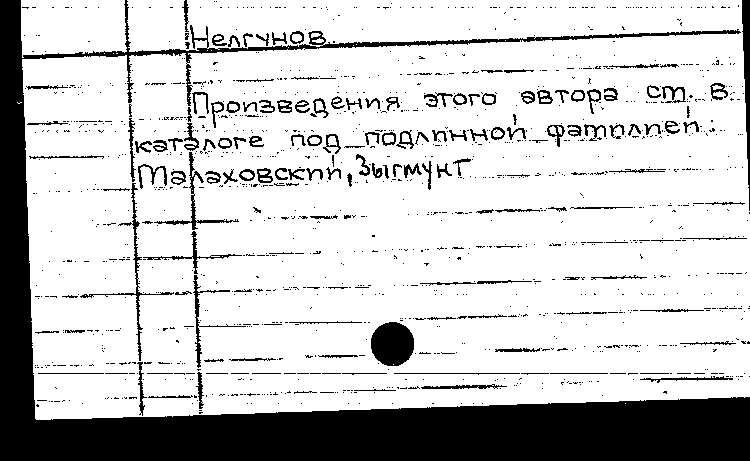 Нелгунов.
Произведения этого автора см. в
каталоге под подлинной фамилией:
Малаховский, Зыгмунт